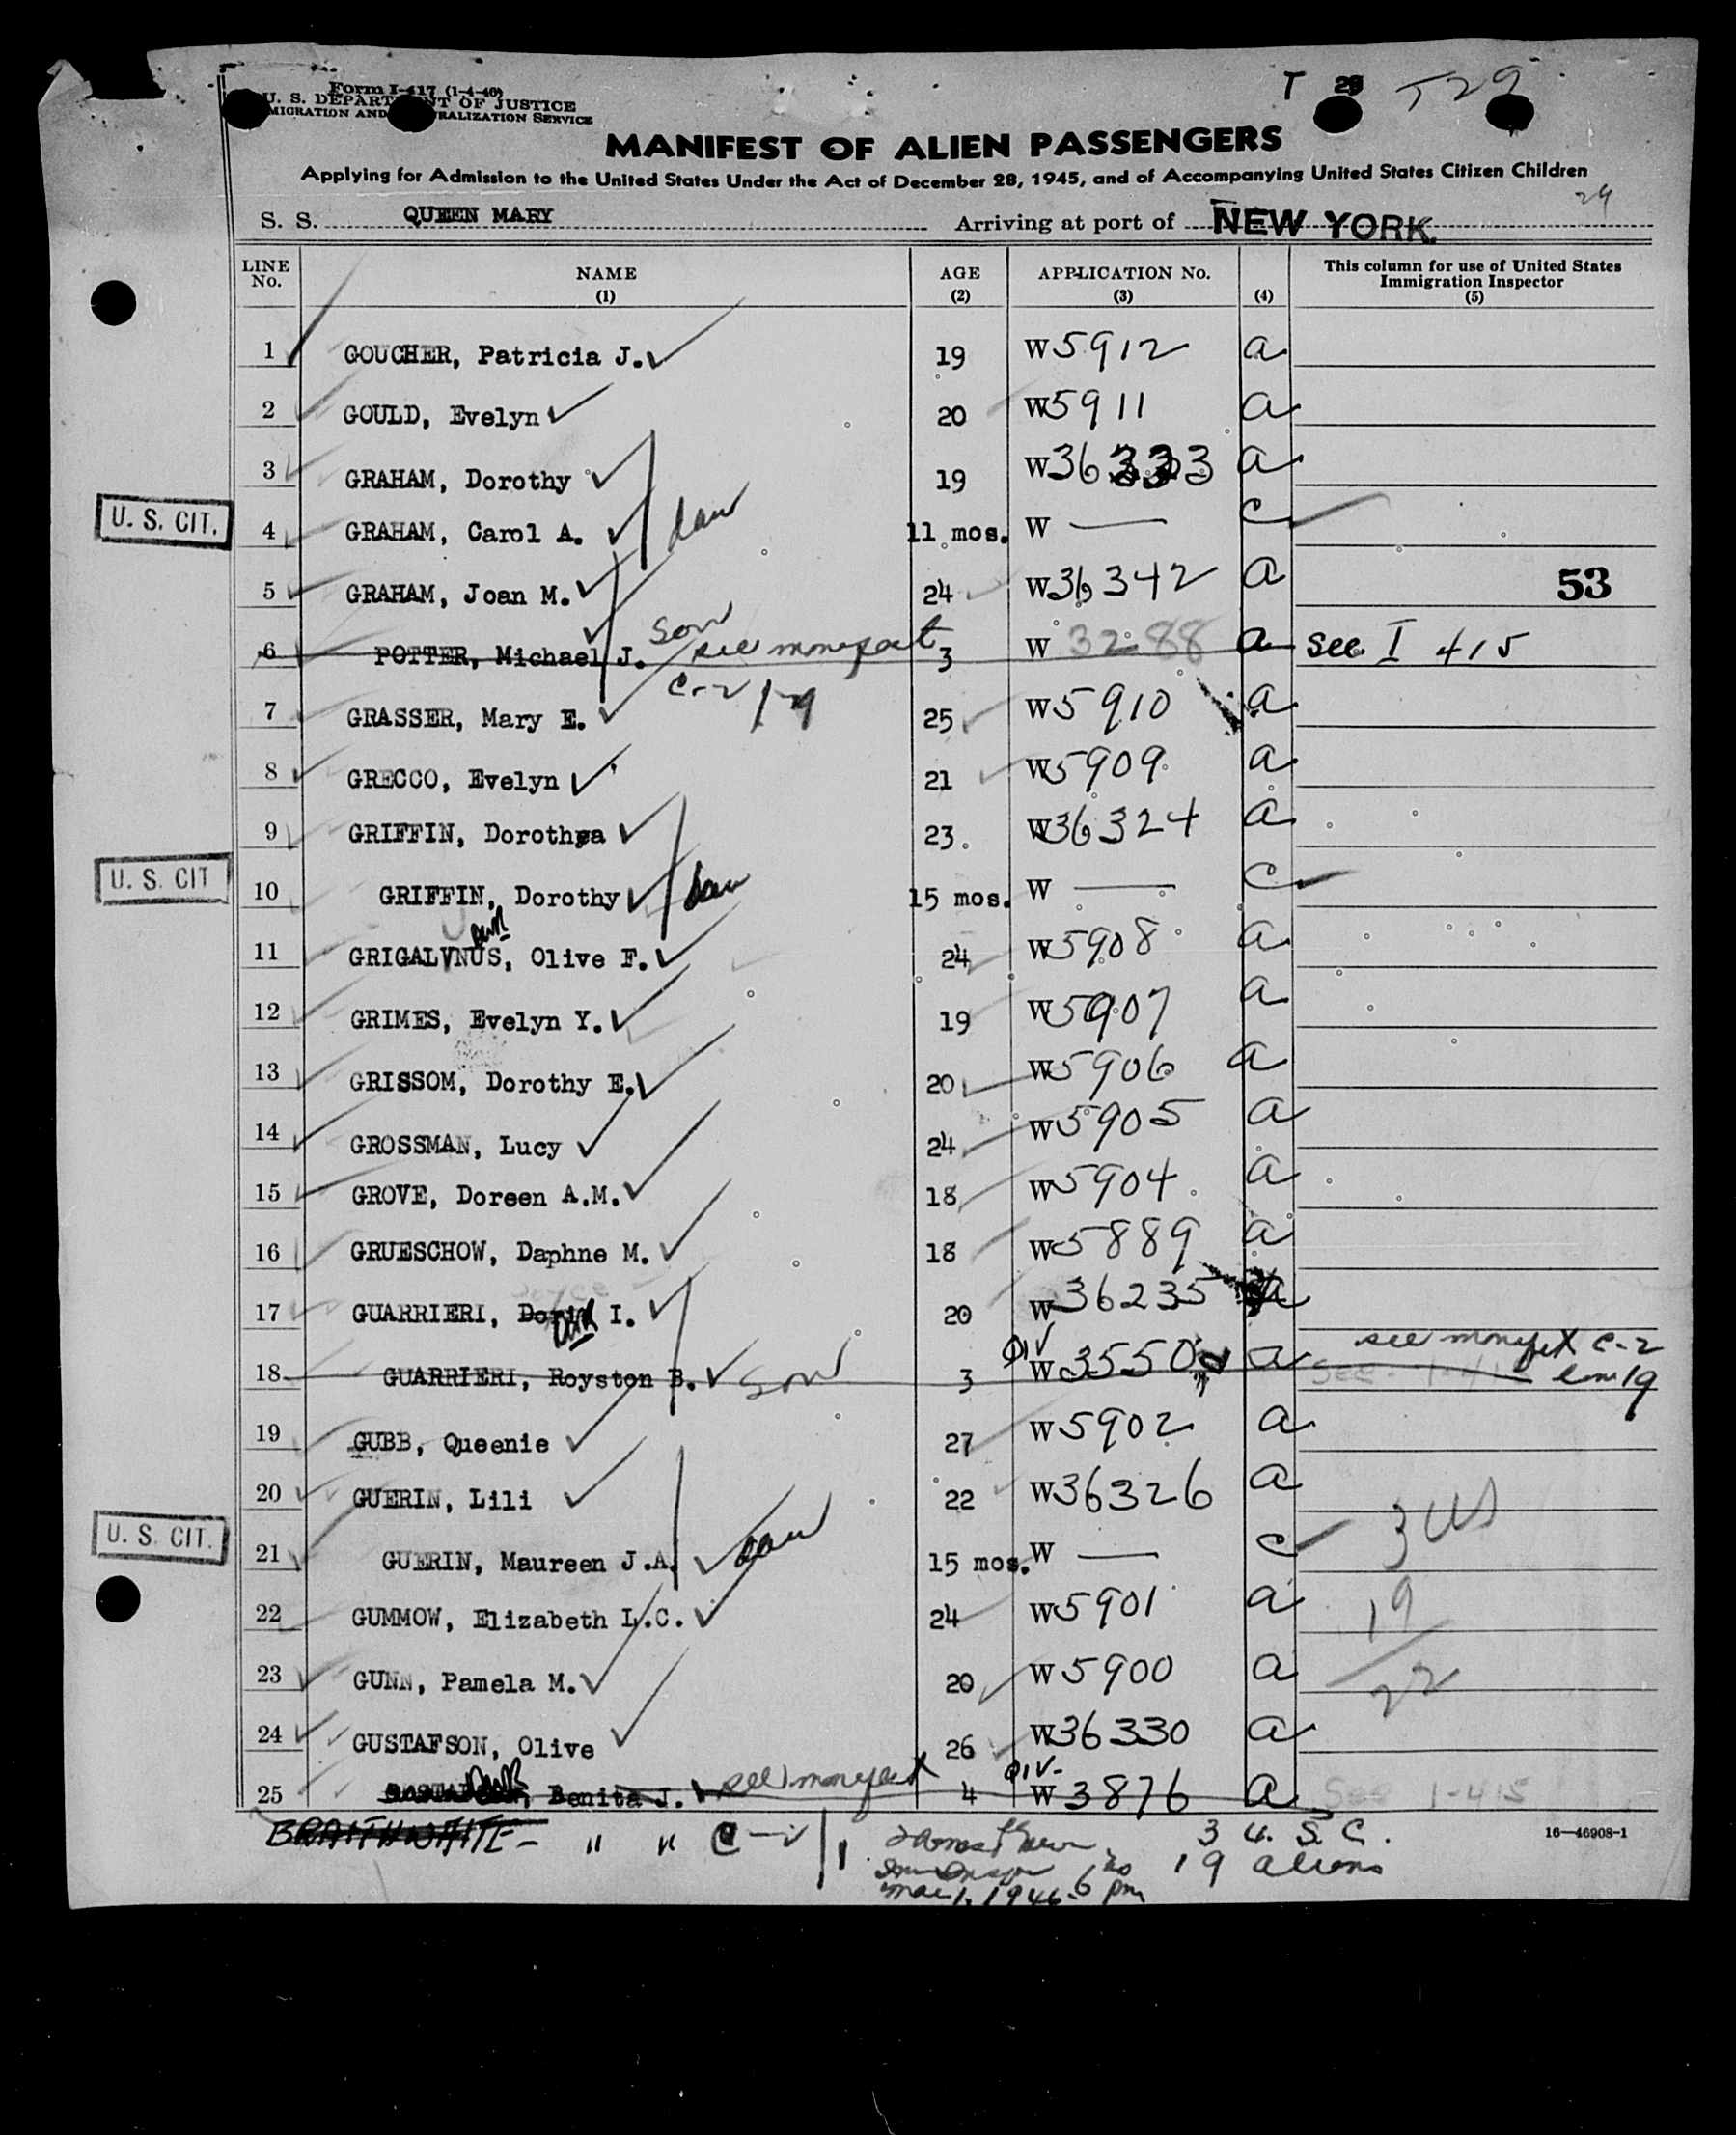 T 29 T29
Form I-417 (1-4-46)
U. S. DEPARTMENT OF JUSTICE
IMMIGRATION AND NATURALIZATION SERVICE
MANIFEST OF ALIEN PASSENGERS
Applying for Admission to the United States Under the Act of December 28, 1945, and of Accompanying United States Citizen Children
29
S. S. QUEEN MARY Arriving at port of NEW YORK.
LINE No. NAME (1) AGE (2) APPLICATION No. (3) (4) This column for use of United States Immigration Inspector (5)
1 GOUCHER, Patricia J. 19 W5912 a
2 GOULD, Evelyn 20 W5911 a
3 GRAHAM, Dorothy 19 W36333 a
U. S. CIT. 4 GRAHAM, Carol A. dau 11 mos. W — c
5 GRAHAM, Joan M. 24 W36342 a 53
6 POTTER, Michael J. Son see manifest 3 W 3288 a See I 415
C-2
7 GRASSER, Mary E. 25 W5910 a
8 GRECCO, Evelyn 21 W5909 a
9 GRIFFIN, Dorothea 23 W36324 a
U. S. CIT 10 GRIFFIN, Dorothy dau 15 mos. W — c
11 GRIGALVNUS, Olive F. 24 W5908 a
12 GRIMES, Evelyn Y. 19 W5907 a
13 GRISSOM, Dorothy E. 20 W5906 a
14 GROSSMAN, Lucy 24 W5905 a
15 GROVE, Doreen A.M. 18 W5904 a
16 GRUESCHOW, Daphne M. 18 W5889 a
17 GUARRIERI, I. 20 W36235 a
see manifest C-2
18 GUARRIERI, Royston B. Son 3 QIV W3550 a See 1-415 line 19
19 GUBB, Queenie 27 W5902 a
20 GUERIN, Lili 22 W36326 a
3 US
U. S. CIT. 21 GUERIN, Maureen J.A. dau 15 mos. W — c
22 GUMMOW, Elizabeth L.C. 24 W5901 a 19
23 GUNN, Pamela M. 20 W5900 a 22
24 GUSTAFSON, Olive 26 W36330 a
25 Benita J. see manifest 4 QIV- W3876 a See 1-415
BRAITHWAITE - " " C-2/1. 3 U. S. C. 16—46908-1
19 aliens
Mar 1, 1946. 6 pm